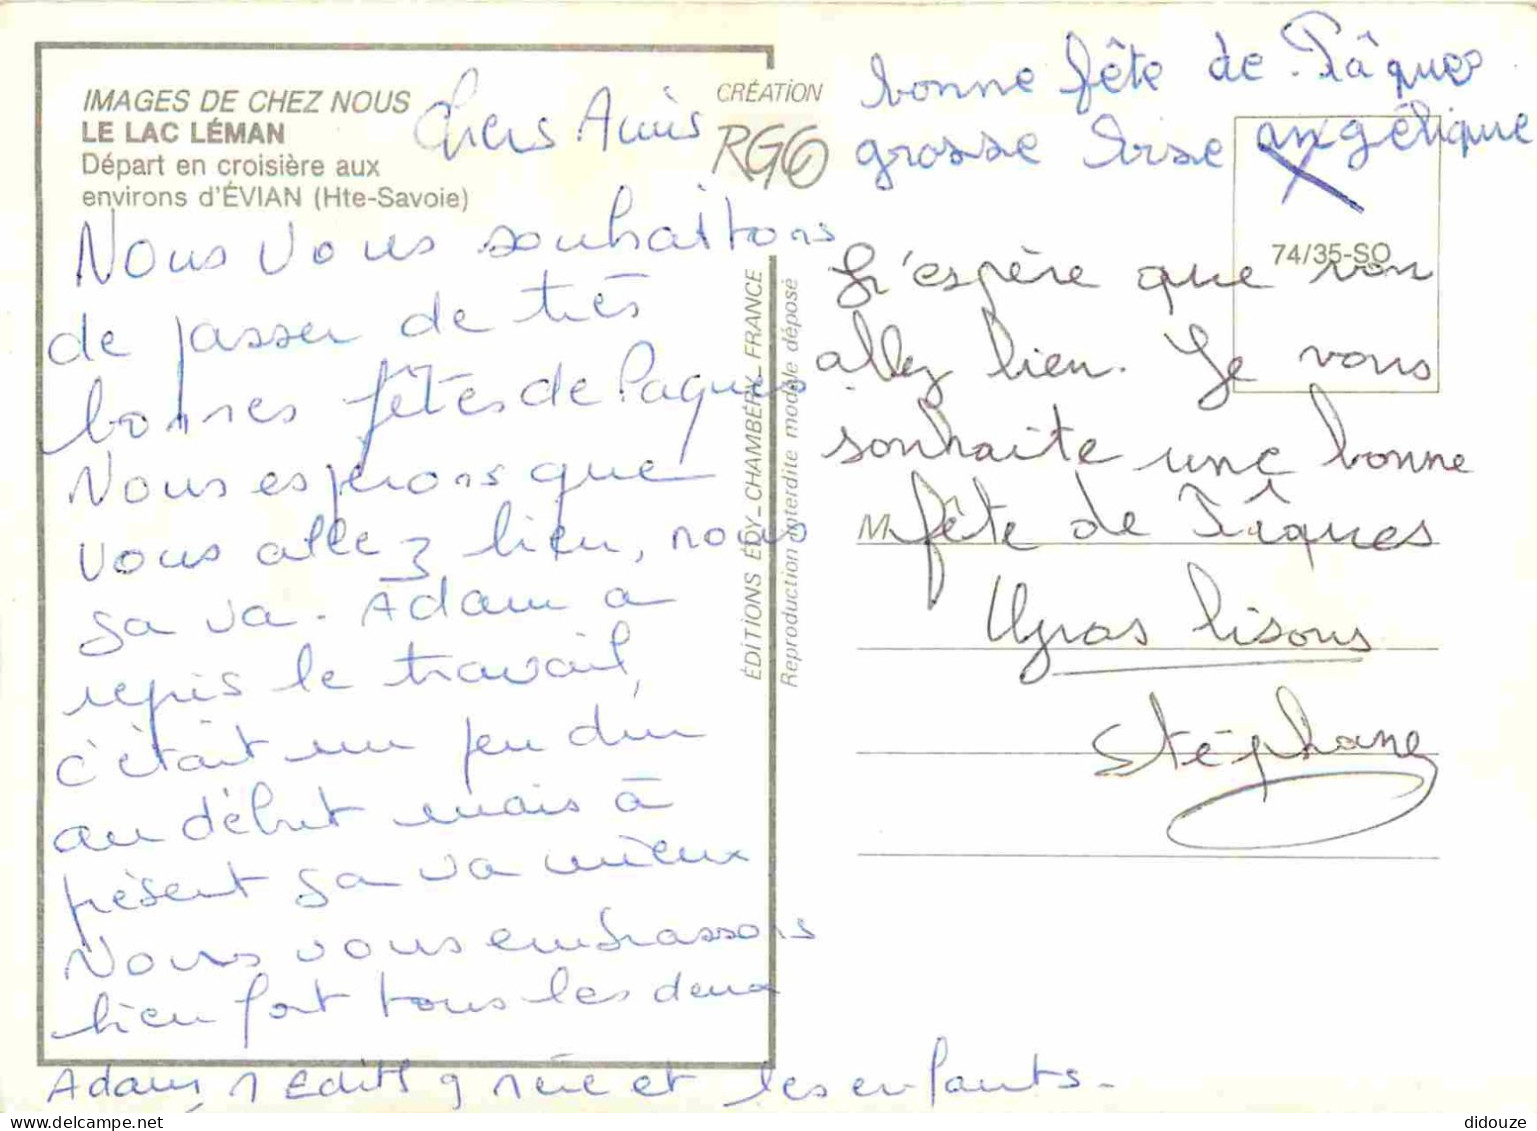 IMAGES DE CHEZ NOUS
LE LAC LÉMAN
Départ en croisière aux
environs d'ÉVIAN (Hte-Savoie)
CRÉATION
ÉDITIONS EDY_CHAMBÉRY_FRANCE
Reproduction interdite modèle déposé
74/35-SO
Chers Amis
Nous Vous souhaitons
de passer de très
bonnes fêtes de Paques
Nous esperons que
vous allez bien, nous
sa va. Adam a
repris le travail,
c'était un peu dur
au début mais à
présent sa va mieux
Nous vous embrassons
bien fort tous les deux
Adam, Edith et les enfants.
bonne fête de Pâques
grosse bise angélique
J'espère que vous
allez bien. Je vous
souhaite une bonne
fête de Pâques
M
gras bisous
Stéphane
didouze